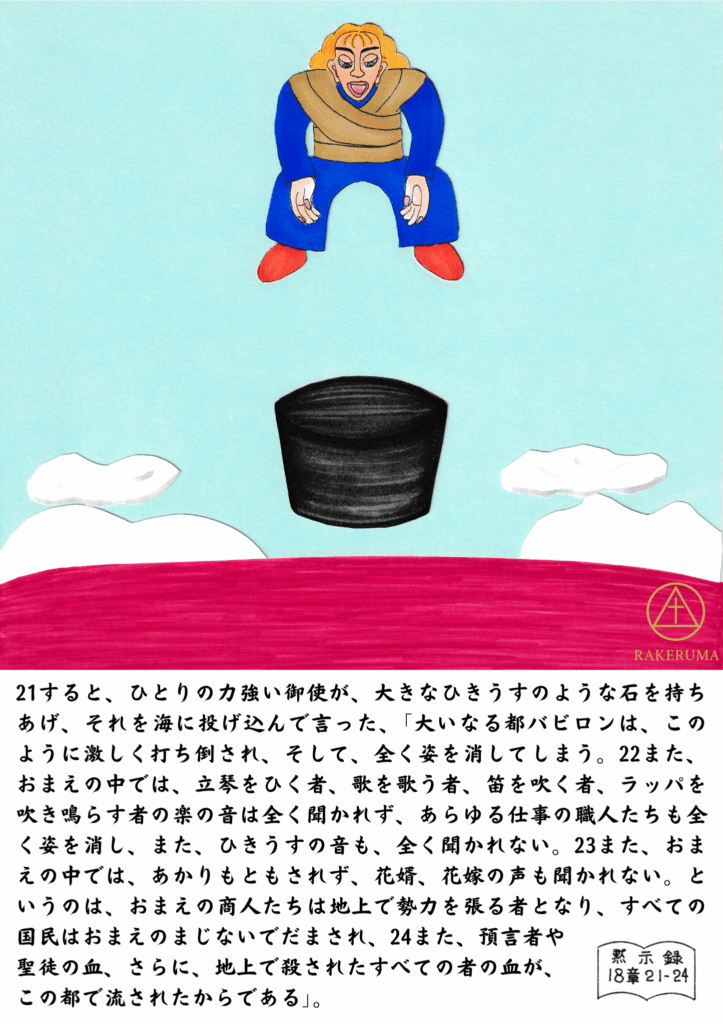 RAKERUMA
21すると、ひとりの力強い御使が、大きなひきうすのような石を持ち
あげ、それを海に投げ込んで言った、「大いなる都バビロンは、この
ように激しく打ち倒され、そして、全く姿を消してしまう。22また、
おまえの中では、立琴をひく者、歌を歌う者、笛を吹く者、ラッパを
吹き鳴らす者の楽の音は全く聞かれず、あらゆる仕事の職人たちも全
く姿を消し、また、ひきうすの音も、全く聞かれない。23また、おま
えの中では、あかりもともされず、花婿、花嫁の声も聞かれない。と
いうのは、おまえの商人たちは地上で勢力を張る者となり、すべての
国民はおまえのまじないでだまされ、24また、預言者や
聖徒の血、さらに、地上で殺されたすべての者の血が、
この都で流されたからである」。
黙示録
18章21-24